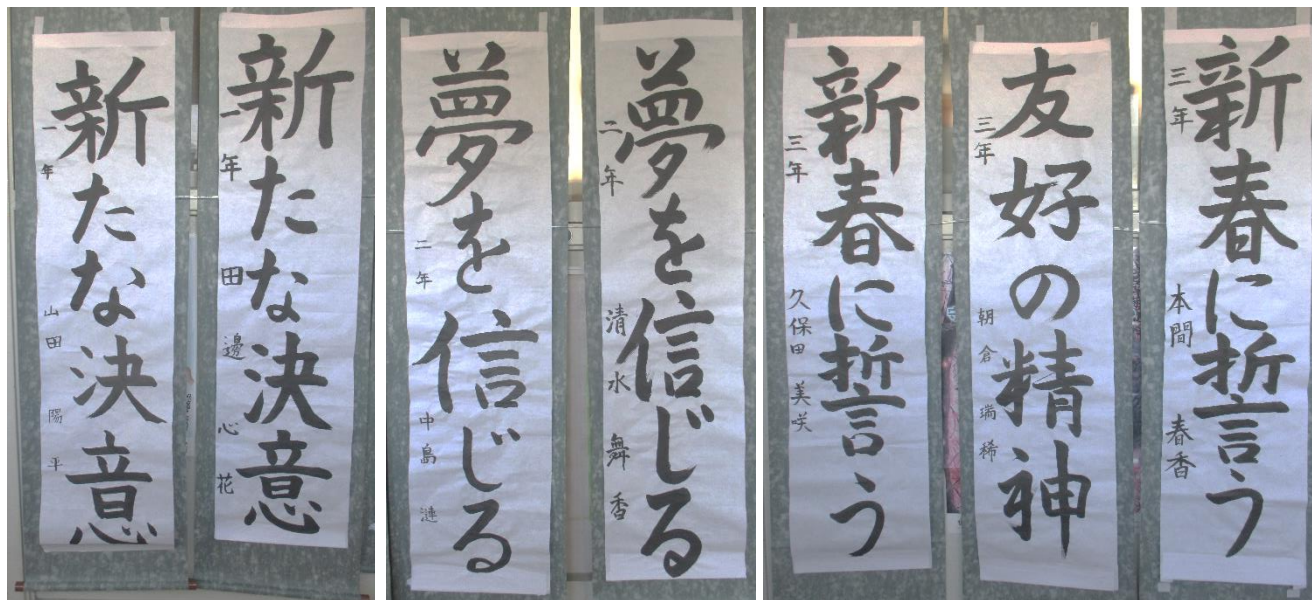 新たな決意
一年 山田 陽平
新たな決意
一年 田邊 心花
夢を信じる
二年 中島 漣
夢を信じる
二年 清水 舞香
新春に誓う
三年 久保田 美咲
友好の精神
三年 朝倉 瑞稀
新春に誓う
三年 本間 春香